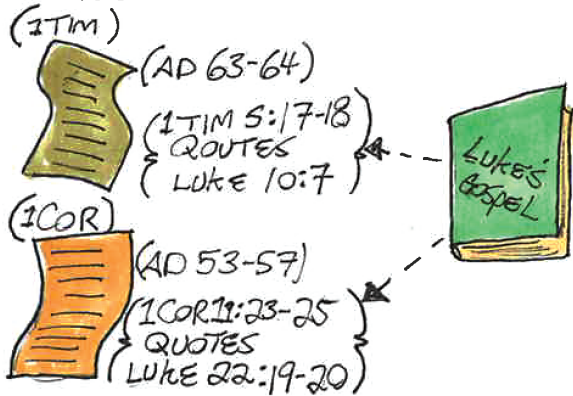 (1TIM)
(AD 63-64)
(1TIM 5:17-18
QOUTES
LUKE 10:7)
LUKE'S
GOSPEL
(1COR)
(AD 53-57)
(1COR11:23-25
QUOTES
LUKE 22:19-20)